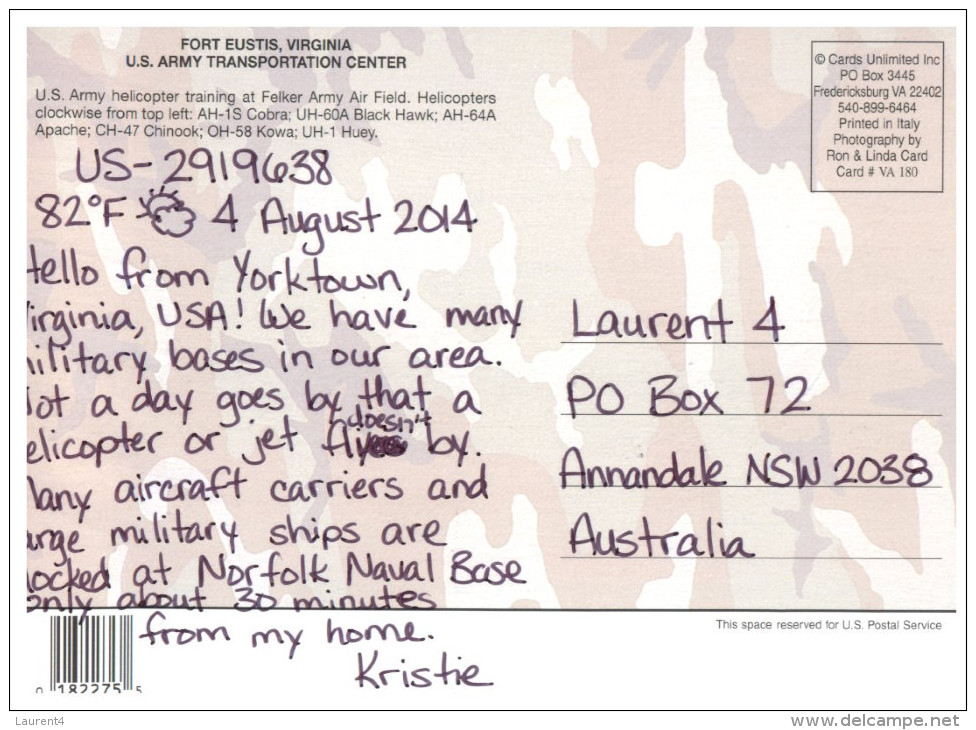 FORT EUSTIS, VIRGINIA
U.S. ARMY TRANSPORTATION CENTER
U.S. Army helicopter training at Felker Army Air Field. Helicopters
clockwise from top left: AH-1S Cobra; UH-60A Black Hawk; AH-64A
Apache; CH-47 Chinook; OH-58 Kowa; UH-1 Huey.
© Cards Unlimited Inc
PO Box 3445
Fredericksburg VA 22402
540-899-6464
Printed in Italy
Photography by
Ron & Linda Card
Card # VA 180
US-2919638
82°F 4 August 2014
Hello from Yorktown,
Virginia, USA! We have many
military bases in our area.
Not a day goes by that a
doesn't
helicopter or jet fly by.
Many aircraft carriers and
large military ships are
docked at Norfolk Naval Base
only about 30 minutes
from my home.
Kristie
Laurent 4
PO Box 72
Annandale NSW 2038
Australia
This space reserved for U.S. Postal Service
0 182275 5
Laurent4
www.delcampe.net